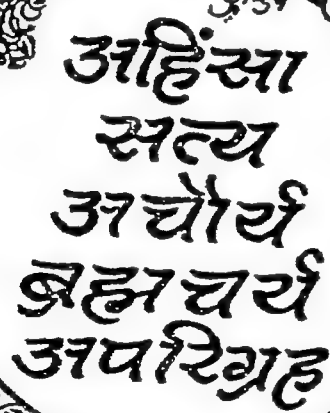 अहिंसा
सत्य
अचौर्य
ब्रह्मचर्य
अपरिग्रह